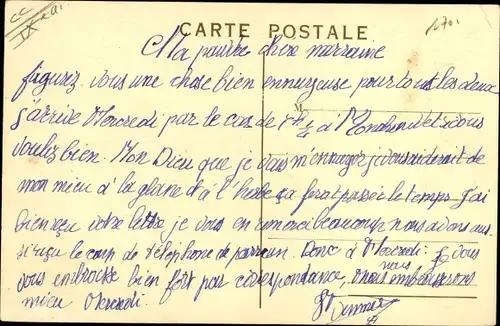 CARTE POSTALE
Ma pauvre chère marraine
figurez vous une chose bien ennuyeuse pour tous les deux
j'arrive Mercredi par le car de 7 à si vous
voulez bien. Mon Dieu que je vais m'ennuyer je vous aiderait de
mon mieu à la glane et à l'herbe ça ferat passée le temps. J'ai
bien reçu votre lettre je vous en remerci beaucoup nous avons aus-
si reçu le coup de téléphone de parrain. Donc à Mercredi. Je vous
vous embrasse bien fort par correspondance, nous nous embrasserons
mieu Mercredi.